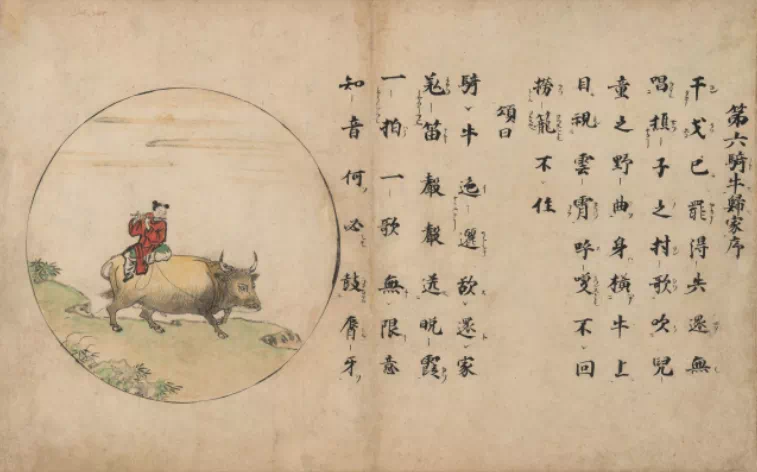 第六騎牛歸家序
干戈已罷得失還無
唱樵子之村歌吹兒
童之野曲身橫牛上
目視雲霄呼喚不回
撈籠不住
頌曰
騎牛迤邐欲還家
羌笛聲聲送晩霞
一拍一歌無限意
知音何必鼓脣牙